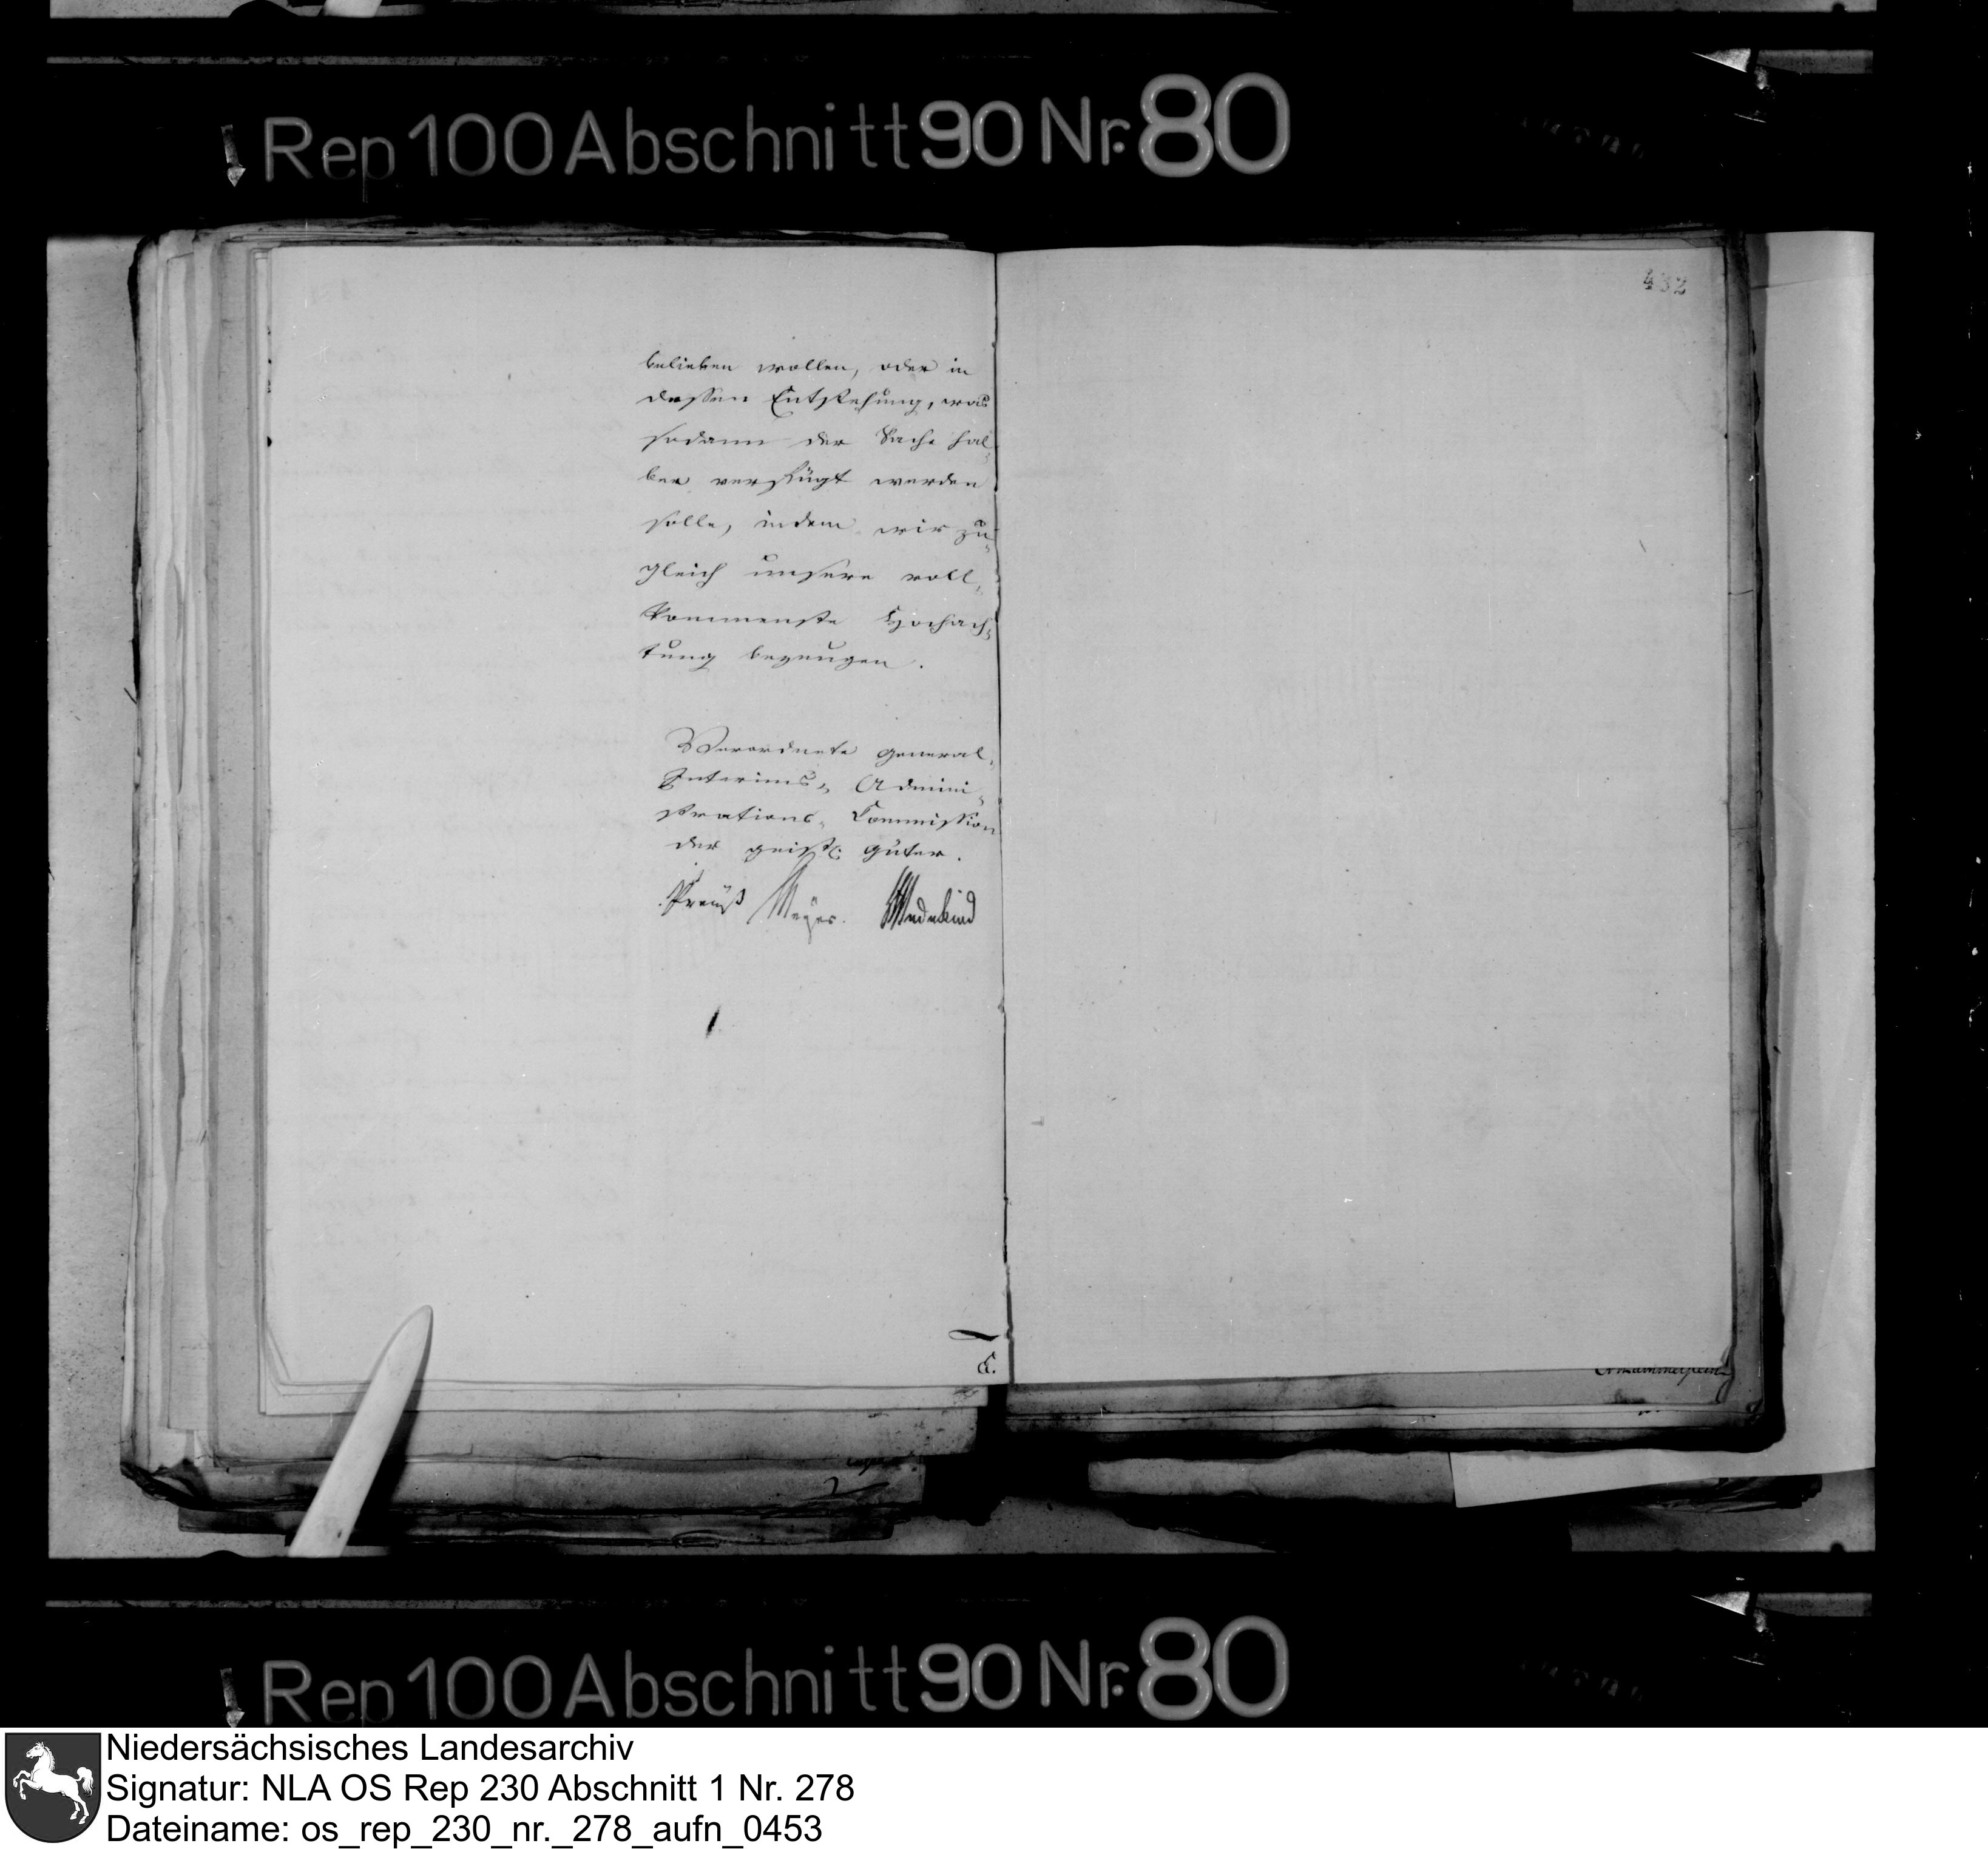 Rep 100 Abschnitt 90 Nr. 80
432
belieben wollen, oder in
dessen Entstehung, was
sodann der Sache hal-
ber verfügt werden
solle, indem wir zu-
gleich unsere voll-
kommenste Hochach-
tung bezeugen.
Verordnete General-
Interims- Admini-
strations- Commission
der geistl: Güter.
Preuß Meyer. Wedekind
Rep 100 Abschnitt 90 Nr. 80
Niedersächsisches Landesarchiv
Signatur: NLA OS Rep 230 Abschnitt 1 Nr. 278
Dateiname: os_rep_230_nr._278_aufn_0453